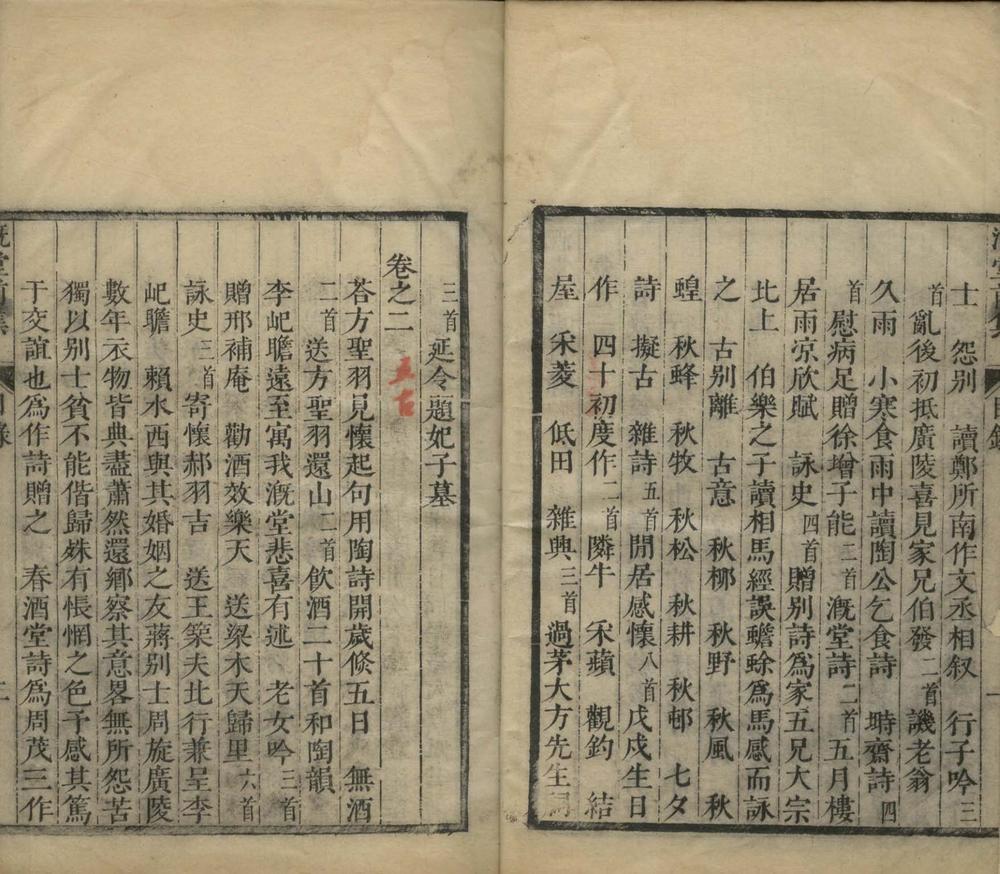 士　怨別　讀鄭所南作文丞相叙　行子吟三
首亂後初抵廣陵喜見家兄伯發二首　譏老翁
久雨　小寒食雨中讀陶公乞食詩　塒齋詩四
首　慰病足贈徐增子能二首　漑堂詩二首　五月樓
居雨凉欣賦　詠史四首　贈別詩爲家五兄大宗
北上　伯樂之子讀相馬經誤蟾蜍爲馬感而詠
之　古別離　古意　秋柳　秋野　秋風　秋
蝗　秋蜂　秋牧　秋松　秋耕　秋邨　七夕
詩　擬古　雜詩五首　閒居感懷八首　戊戌生日
作　四十初度作二首　隣牛　采蘋　觀釣　結
屋　采菱　低田　雜興三首　過茅大方先生
三首　延令題妃子墓
卷之二　五古
荅方聖羽見懷起句用陶詩開歲倏五日　無酒
二首　送方聖羽還山二首　飲酒二十首和陶韻
李屺瞻遠至寓我漑堂悲喜有述　老女吟三首
贈邢補庵　勸酒效樂天　送梁木天歸里六首
詠史三首　寄懷郝羽吉　送王築夫北行兼呈李
屺瞻　賴水西與其婚姻之友蔣別士周旋廣陵
數年衣物皆典盡蕭然還鄉察其意畧無所怨苦
獨以別士貧不能偕歸姝有悵惘之色予感其篤
于交誼也爲作詩贈之　春酒堂詩爲周茂三作
漑堂前集　目錄　二